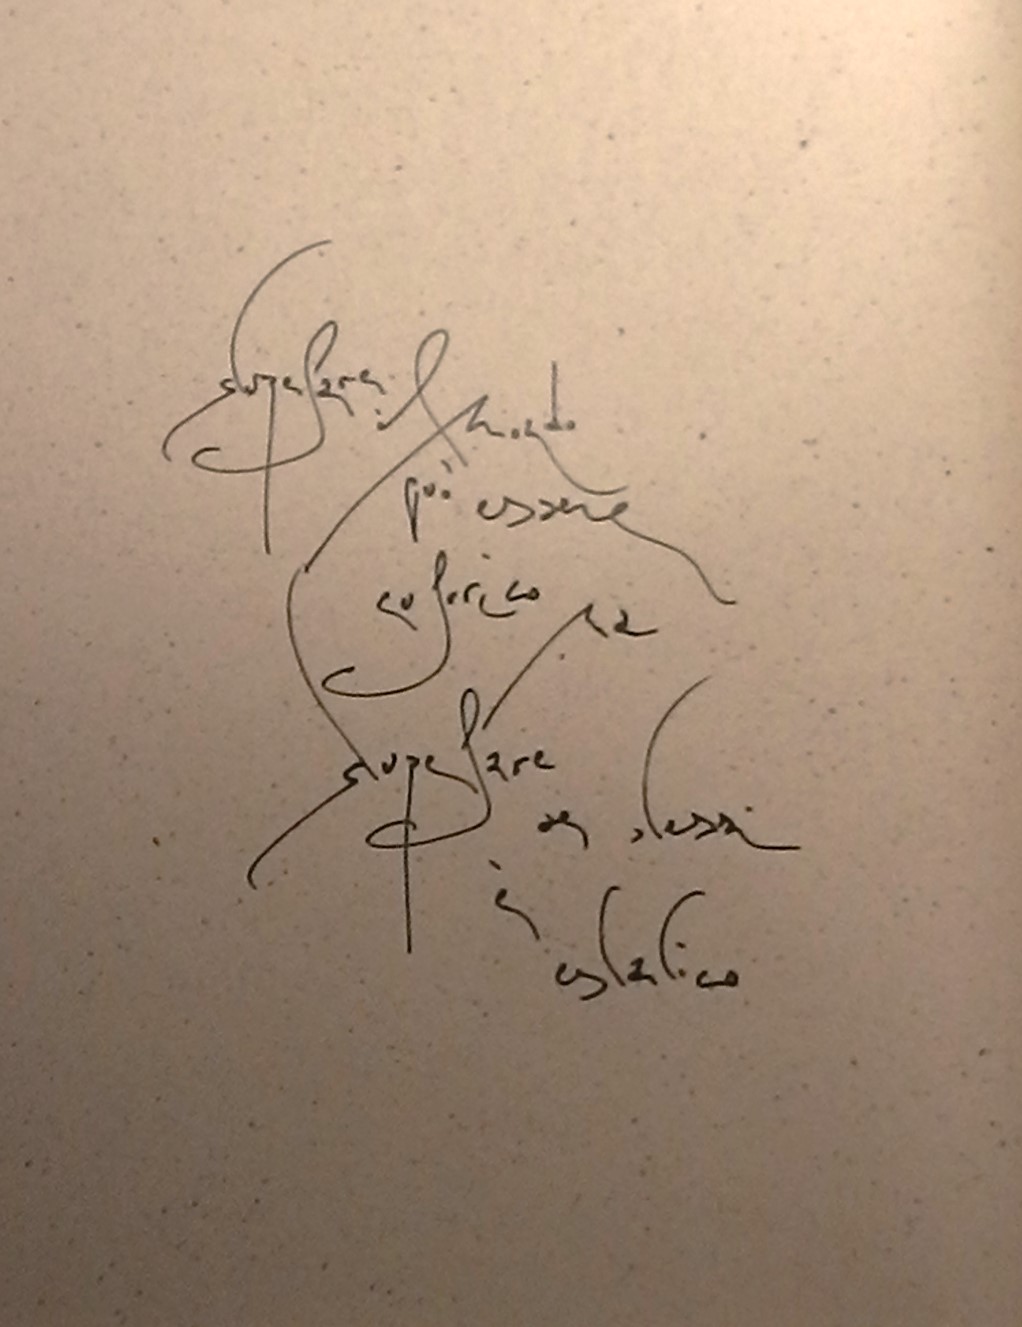 stupefare il mondo
può essere
euforico ma
stupefare
se stessi
è
estatico